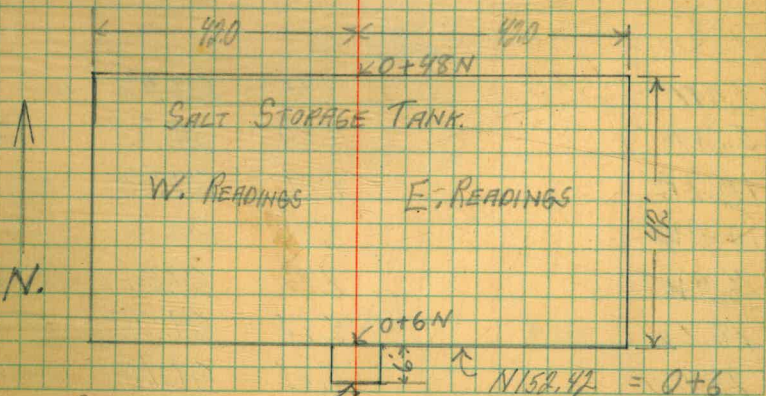 42.0 42.0
0+48N
SALT STORAGE TANK.
W. READINGS E. READINGS
42'
N.
0+6N
6'
N152.42 = 0+6